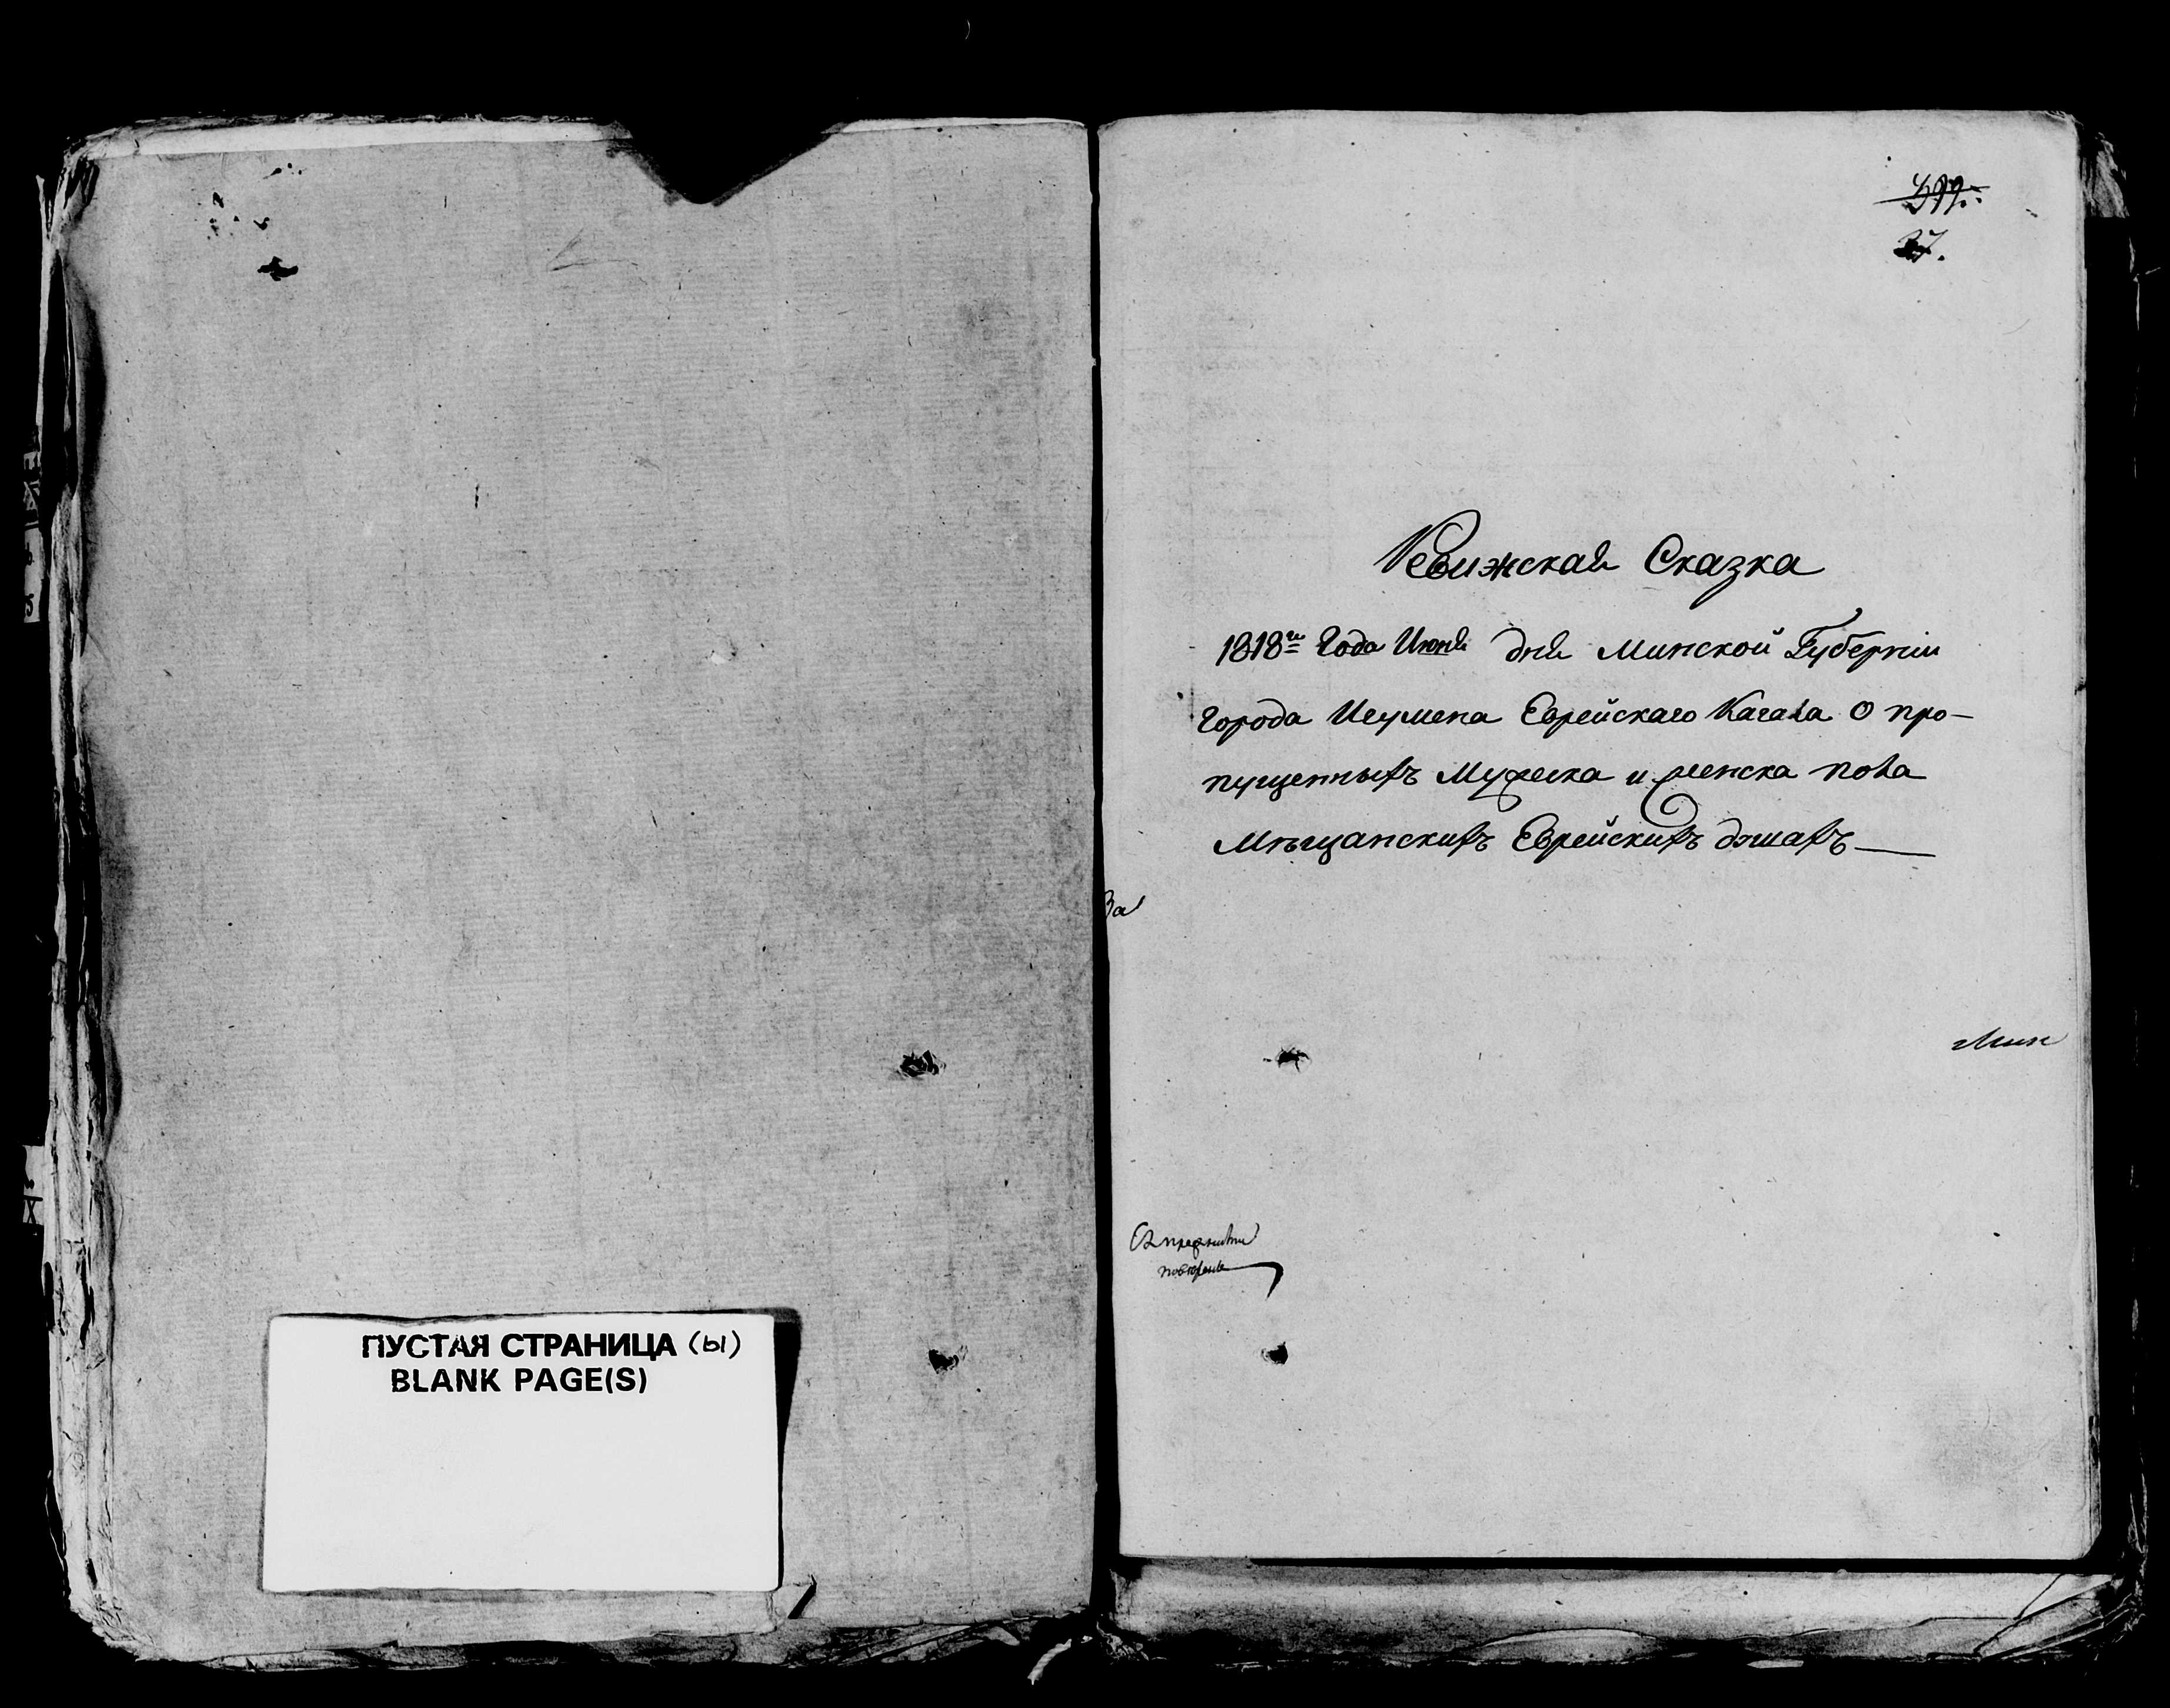 ПУСТАЯ СТРАНИЦА (ы)
BLANK PAGE(S)
37.
Ревижская Сказка
1818го Года Июня дня Минской Губернiи
города Игумена Еврейскаго Кагала О про-
пущенныхъ Мужеска и женска пола
Мѣщанскихъ Еврейскихъ душахъ
За
Мин